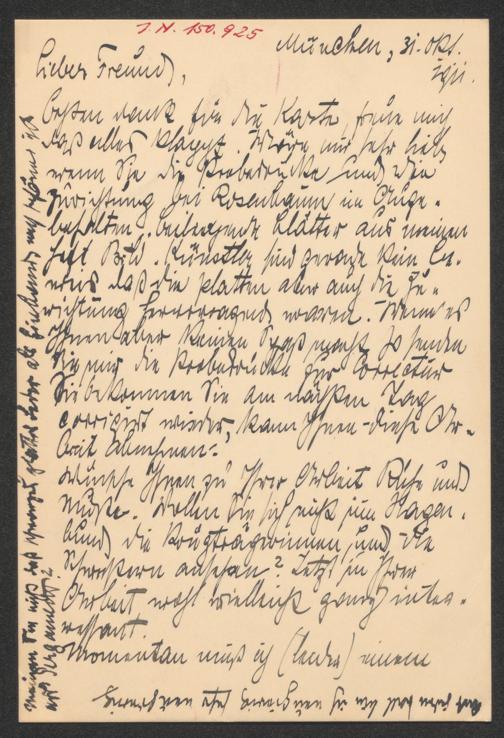 J.N. 150.925
München, 31. Okt.
1911.
Lieber Freund,
besten Dank für die Karte, freue mich
daß alles klappt. Wäre mir sehr lieb
wenn Sie die Probedrucke und die
Zurichtung bei Rosenbaum im Auge
behalten. beiliegende Blätter aus meinem
Heft Bild. Künstler sind gerade kein
daß die Platten aber auch die Zu-
richtung hervorragend waren. Wenn es
Ihnen aber keinen Spaß macht so senden
Sie mir die Probedrucke zur Correctur
Sie bekommen Sie am nächsten Tag
corrigirt wieder, kann Ihnen diese Ar-
beit abnehmen.
wünsche Ihnen zu Ihrer Arbeit Ruhe und
Muße. Wollen Sie sich nicht zum Hagen-
bund die Krugträgerinnen und die
Schwestern ansehen? Jetzt in Ihrer
Arbeit wohl vielleicht ganz inter-
essant.
Momentan muß ich (leider) einem
meinen Sie nicht daß glattes Leder als Einband
wie Pergament?